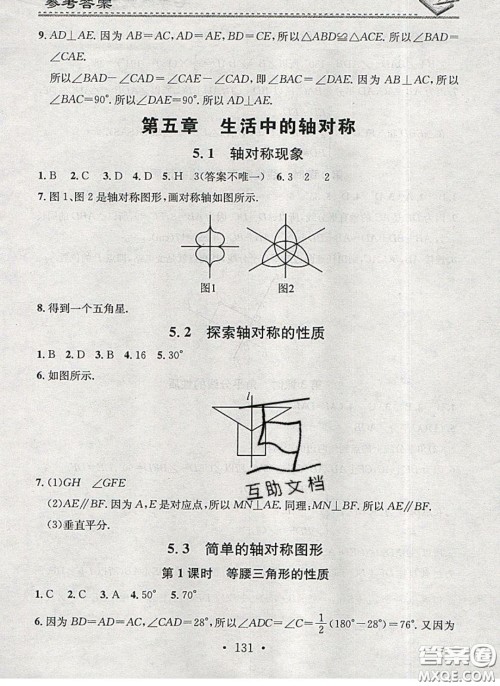 参考答案
9. AD⊥AE. 因为 AB=AC, AD=AE, BD=CE, 所以△ABD≌△ACE. 所以∠BAD=∠CAE.
所以∠BAD-∠CAD=∠CAE-∠CAD, 即∠BAC=∠DAE. 因为 AB⊥AC, 所以∠BAC=90°. 所以∠DAE=90°. 所以 AD⊥AE.
第五章 生活中的轴对称
5.1 轴对称现象
1. B 2. C 3. D 4. D 5. H 3(答案不唯一) 6. 3 2 2
7. 图1、图2是轴对称图形,画对称轴如图所示.
图1 图2
8. 得到一个五角星.
5.2 探索轴对称的性质
1. B 2. D 3. B 4. 16 5. 30°
6. 如图所示.
l
互助文档
7. (1)GH ∠GFE
(2)AE∥BF. 因为 A,E 是对应点,所以 MN⊥AE. 同理:MN⊥BF. 所以 AE∥BF.
(3)垂直平分.
5.3 简单的轴对称图形
第1课时 等腰三角形的性质
1. C 2. C 3. A 4. 50° 5. 70°
6. 因为 BD=AD=AC, ∠CAD=28°, 所以∠ADC=∠C=1/2(180°-28°)=76°. 又因为
· 131 ·